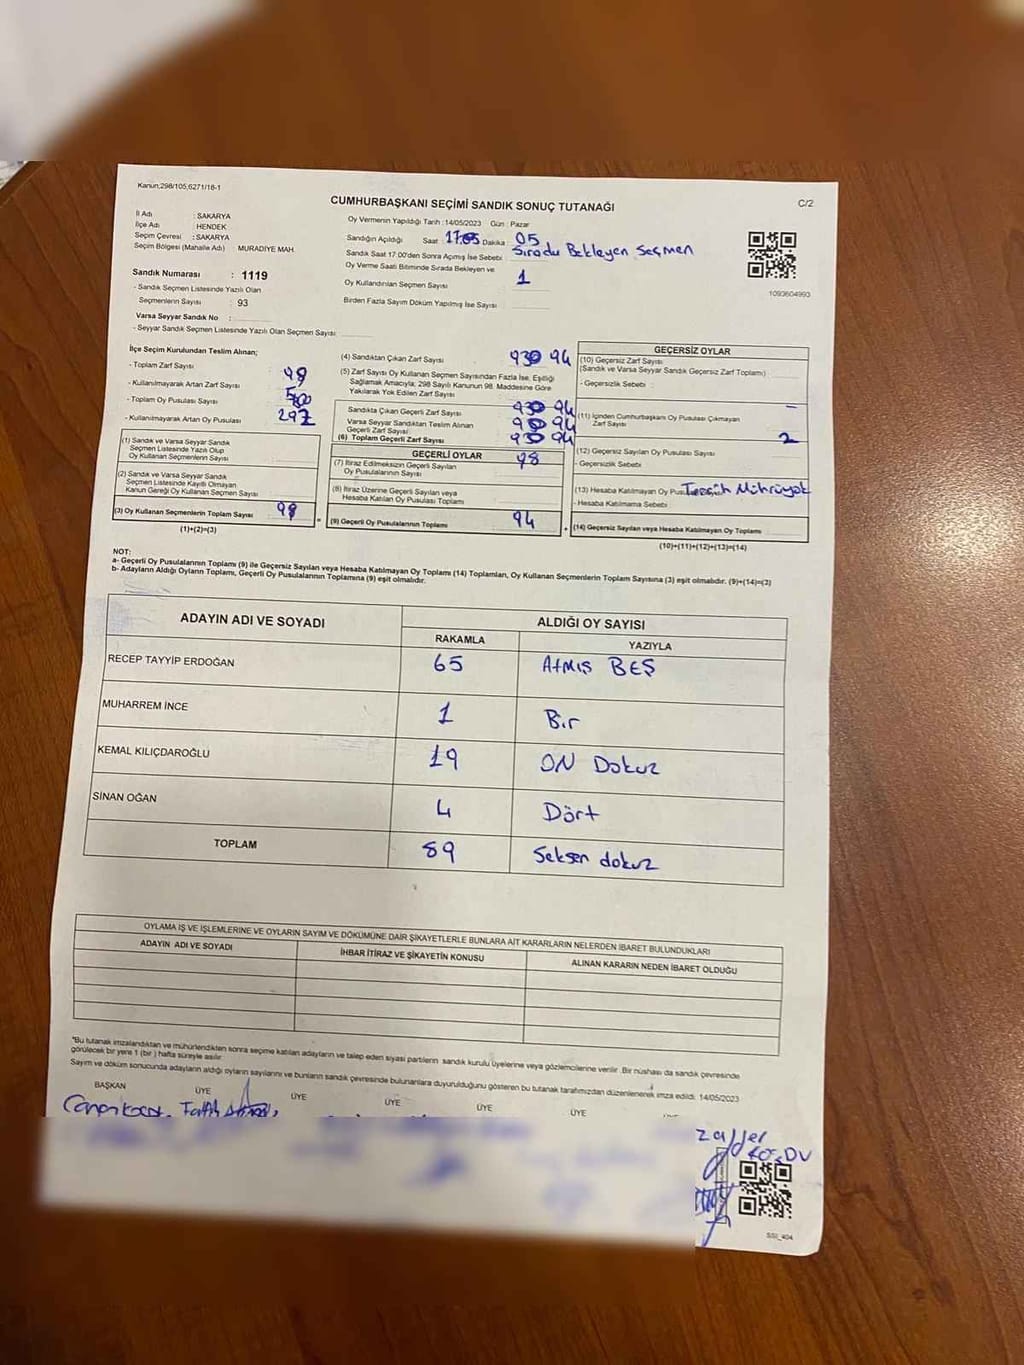 Kanun;298/105,6271/18-1
CUMHURBAŞKANI SEÇİMİ SANDIK SONUÇ TUTANAĞI
C/2
İl Adı : SAKARYA
İlçe Adı : HENDEK
Seçim Çevresi : SAKARYA
Seçim Bölgesi (Mahalle Adı) : MURADİYE MAH.
Oy Vermenin Yapıldığı Tarih :14/05/2023 Gün : Pazar
Sandığın Açıldığı Saat : 17:05 Dakika : 05
Sandık Saat 17.00'den Sonra Açımış İse Sebebi : Sırada Bekleyen Seçmen
Oy Verme Saati Bitiminde Sırada Bekleyen ve
Oy Kullandırılan Seçmen Sayısı : 1
Birden Fazla Sayım Döküm Yapılmış İse Sayısı :
1093604993
Sandık Numarası : 1119
- Sandık Seçmen Listesinde Yazılı Olan
Seçmenlerin Sayısı : 93
Varsa Seyyar Sandık No :
- Seyyar Sandık Seçmen Listesinde Yazılı Olan Seçmen Sayısı:
İlçe Seçim Kurulundan Teslim Alınan;
- Toplam Zarf Sayısı :
- Kullanılmayarak Artan Zarf Sayısı :
- Toplam Oy Pusulası Sayısı :
- Kullanılmayarak Artan Oy Pusulası : 297
(1) Sandık ve Varsa Seyyar Sandık
Seçmen Listesinde Yazılı Olup
Oy Kullanan Seçmenlerin Sayısı
(2) Sandık ve Varsa Seyyar Sandık
Seçmen Listesinde Kayıtlı Olmayan
Kanun Gereği Oy Kullanan Seçmen Sayısı
(3) Oy Kullanan Seçmenlerin Toplam Sayısı
(1)+(2)=(3)
(4) Sandıktan Çıkan Zarf Sayısı : 94
(5) Zarf Sayısı Oy Kullanan Seçmen Sayısından Fazla İse, Eşitliği
Sağlamak Amacıyla; 298 Sayılı Kanunun 98. Maddesine Göre
Yakılarak Yok Edilen Zarf Sayısı :
Sandıkta Çıkan Geçerli Zarf Sayısı : 94
Varsa Seyyar Sandıktan Teslim Alınan
Geçerli Zarf Sayısı : 94
(6) Toplam Geçerli Zarf Sayısı : 94
GEÇERLİ OYLAR
(7) İtiraz Edilmeksizin Geçerli Sayılan
Oy Pusulalarının Sayısı
(8) İtiraz Üzerine Geçerli Sayılan veya
Hesaba Katılan Oy Pusulası Toplamı
(9) Geçerli Oy Pusulalarının Toplamı 94
GEÇERSİZ OYLAR
(10) Geçersiz Zarf Sayısı
(Sandık ve Varsa Seyyar Sandık Geçersiz Zarf Toplamı) :
- Geçersizlik Sebebi :
(11) İçinden Cumhurbaşkanı Oy Pusulası Çıkmayan
Zarf Sayısı : -
(12) Geçersiz Sayılan Oy Pusulası Sayısı : 2
- Geçersizlik Sebebi :
(13) Hesaba Katılmayan Oy Tercih Mühürü yok
- Hesaba Katılmama Sebebi :
(14) Geçersiz Sayılan veya Hesaba Katılmayan Oy Toplamı
(10)+(11)+(12)+(13)=(14)
NOT:
a- Geçerli Oy Pusulalarının Toplamı (9) ile Geçersiz Sayılan veya Hesaba Katılmayan Oy Toplamı (14) Toplamları, Oy Kullanan Seçmenlerin Toplam Sayısına (3) eşit olmalıdır. (9)+(14)=(3)
b- Adayların Aldığı Oyların Toplamı, Geçerli Oy Pusulalarının Toplamına (9) eşit olmalıdır.
ADAYIN ADI VE SOYADI ALDIĞI OY SAYISI
RAKAMLA YAZIYLA
RECEP TAYYİP ERDOĞAN 65 AtMıŞ BEŞ
MUHARREM İNCE 1 Bir
KEMAL KILIÇDAROĞLU 19 ON Dokuz
SİNAN OĞAN 4 Dört
TOPLAM 89 Seksen dokuz
OYLAMA İŞ VE İŞLEMLERİNE VE OYLARIN SAYIM VE DÖKÜMÜNE DAİR ŞİKAYETLERLE BUNLARA AİT KARARLARIN NELERDEN İBARET BULUNDUKLARI
ADAYIN ADI VE SOYADI İHBAR İTİRAZ VE ŞİKAYETİN KONUSU ALINAN KARARIN NEDEN İBARET OLDUĞU
*Bu tutanak imzalandıktan ve mühürlendikten sonra seçime katılan adayların ve talep eden siyasi partilerin sandık kurulu üyelerine veya gözlemcilerine verilir. Bir nüshası da sandık çevresinde
görülecek bir yere 1 (bir) hafta süreyle asılır.
Sayım ve döküm sonucunda adayların aldığı oyların sayılarını ve bunların sandık çevresinde bulunanlara duyurulduğunu gösteren bu tutanak tarafımızdan düzenlenerek imza edildi. 14/05/2023
BAŞKAN ÜYE ÜYE ÜYE ÜYE ÜYE
Zafer